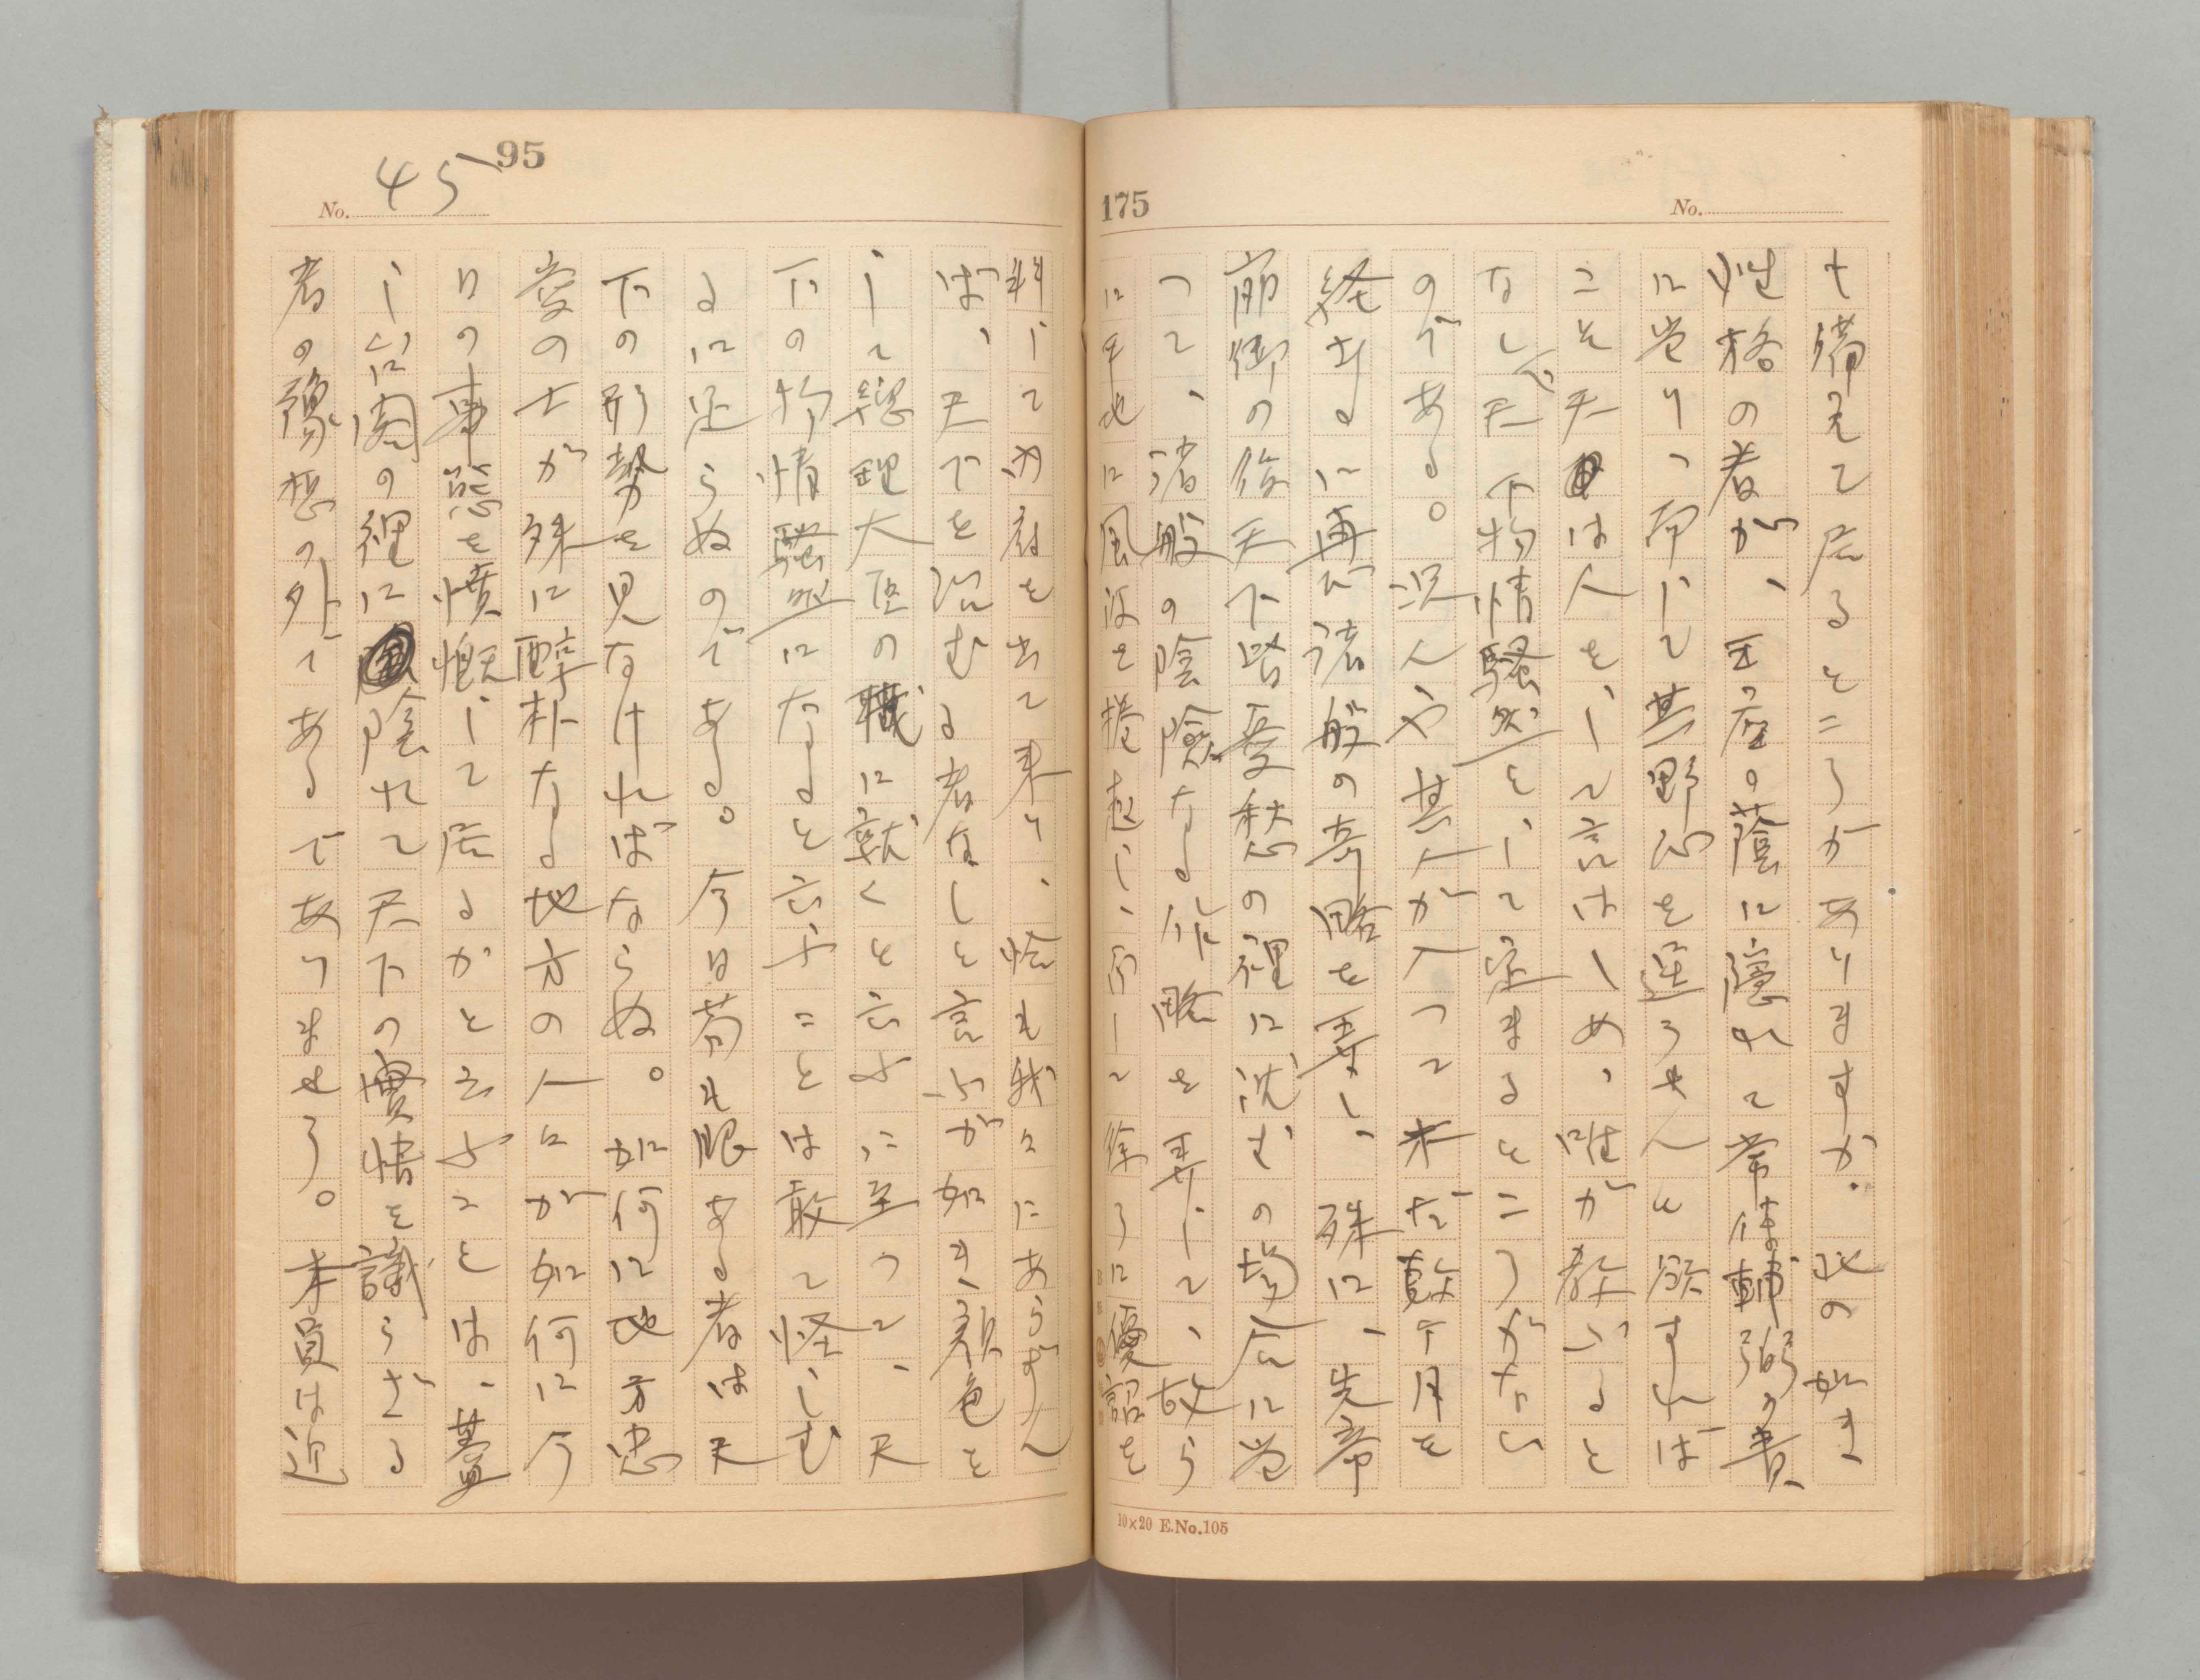 175
No.
十備えて居るところがありますか。此の如き
性格の者が、玉座の蔭に隠れて常侍輔弼の責
に当り、而して其野心を逞うせんと欲すれば
こそ天は人をして言はしめ、唯が教ふると
なしに天下物情騒然として定まるところがない
のである。況んや其人が入つて未だ数ケ月を
経ざるに再び諸般の奇略を弄し、殊に、先帝
崩御の後天下皆憂愁の裡に沈むの場合に当
つて、諸般の陰険なる作略を弄して、故ら
に平地に風波を捲起し、而して徐ろに優詔を
10×20 E.No.105
95
No. 45
料して内府を出て来り、恰も我々にあらずん
ば、天下を治むる者なしと言ふが如き顔色を
して総理大臣の職に就くと云ふに至つて、天
下の物情騒然になると云ふことは敢て怪しむ
るに足らぬのである。今日苟も眼ある者は天
下の形勢を見なければならぬ。如何に地方忠
愛の士が殊に醇朴なる地方の人々が如何に今
日の事態を憤慨して居るかと云ふことは、蓋
し台閣の裡に陰れて天下の実情を識らざる
者の予想の外であるでありませう。本員は近